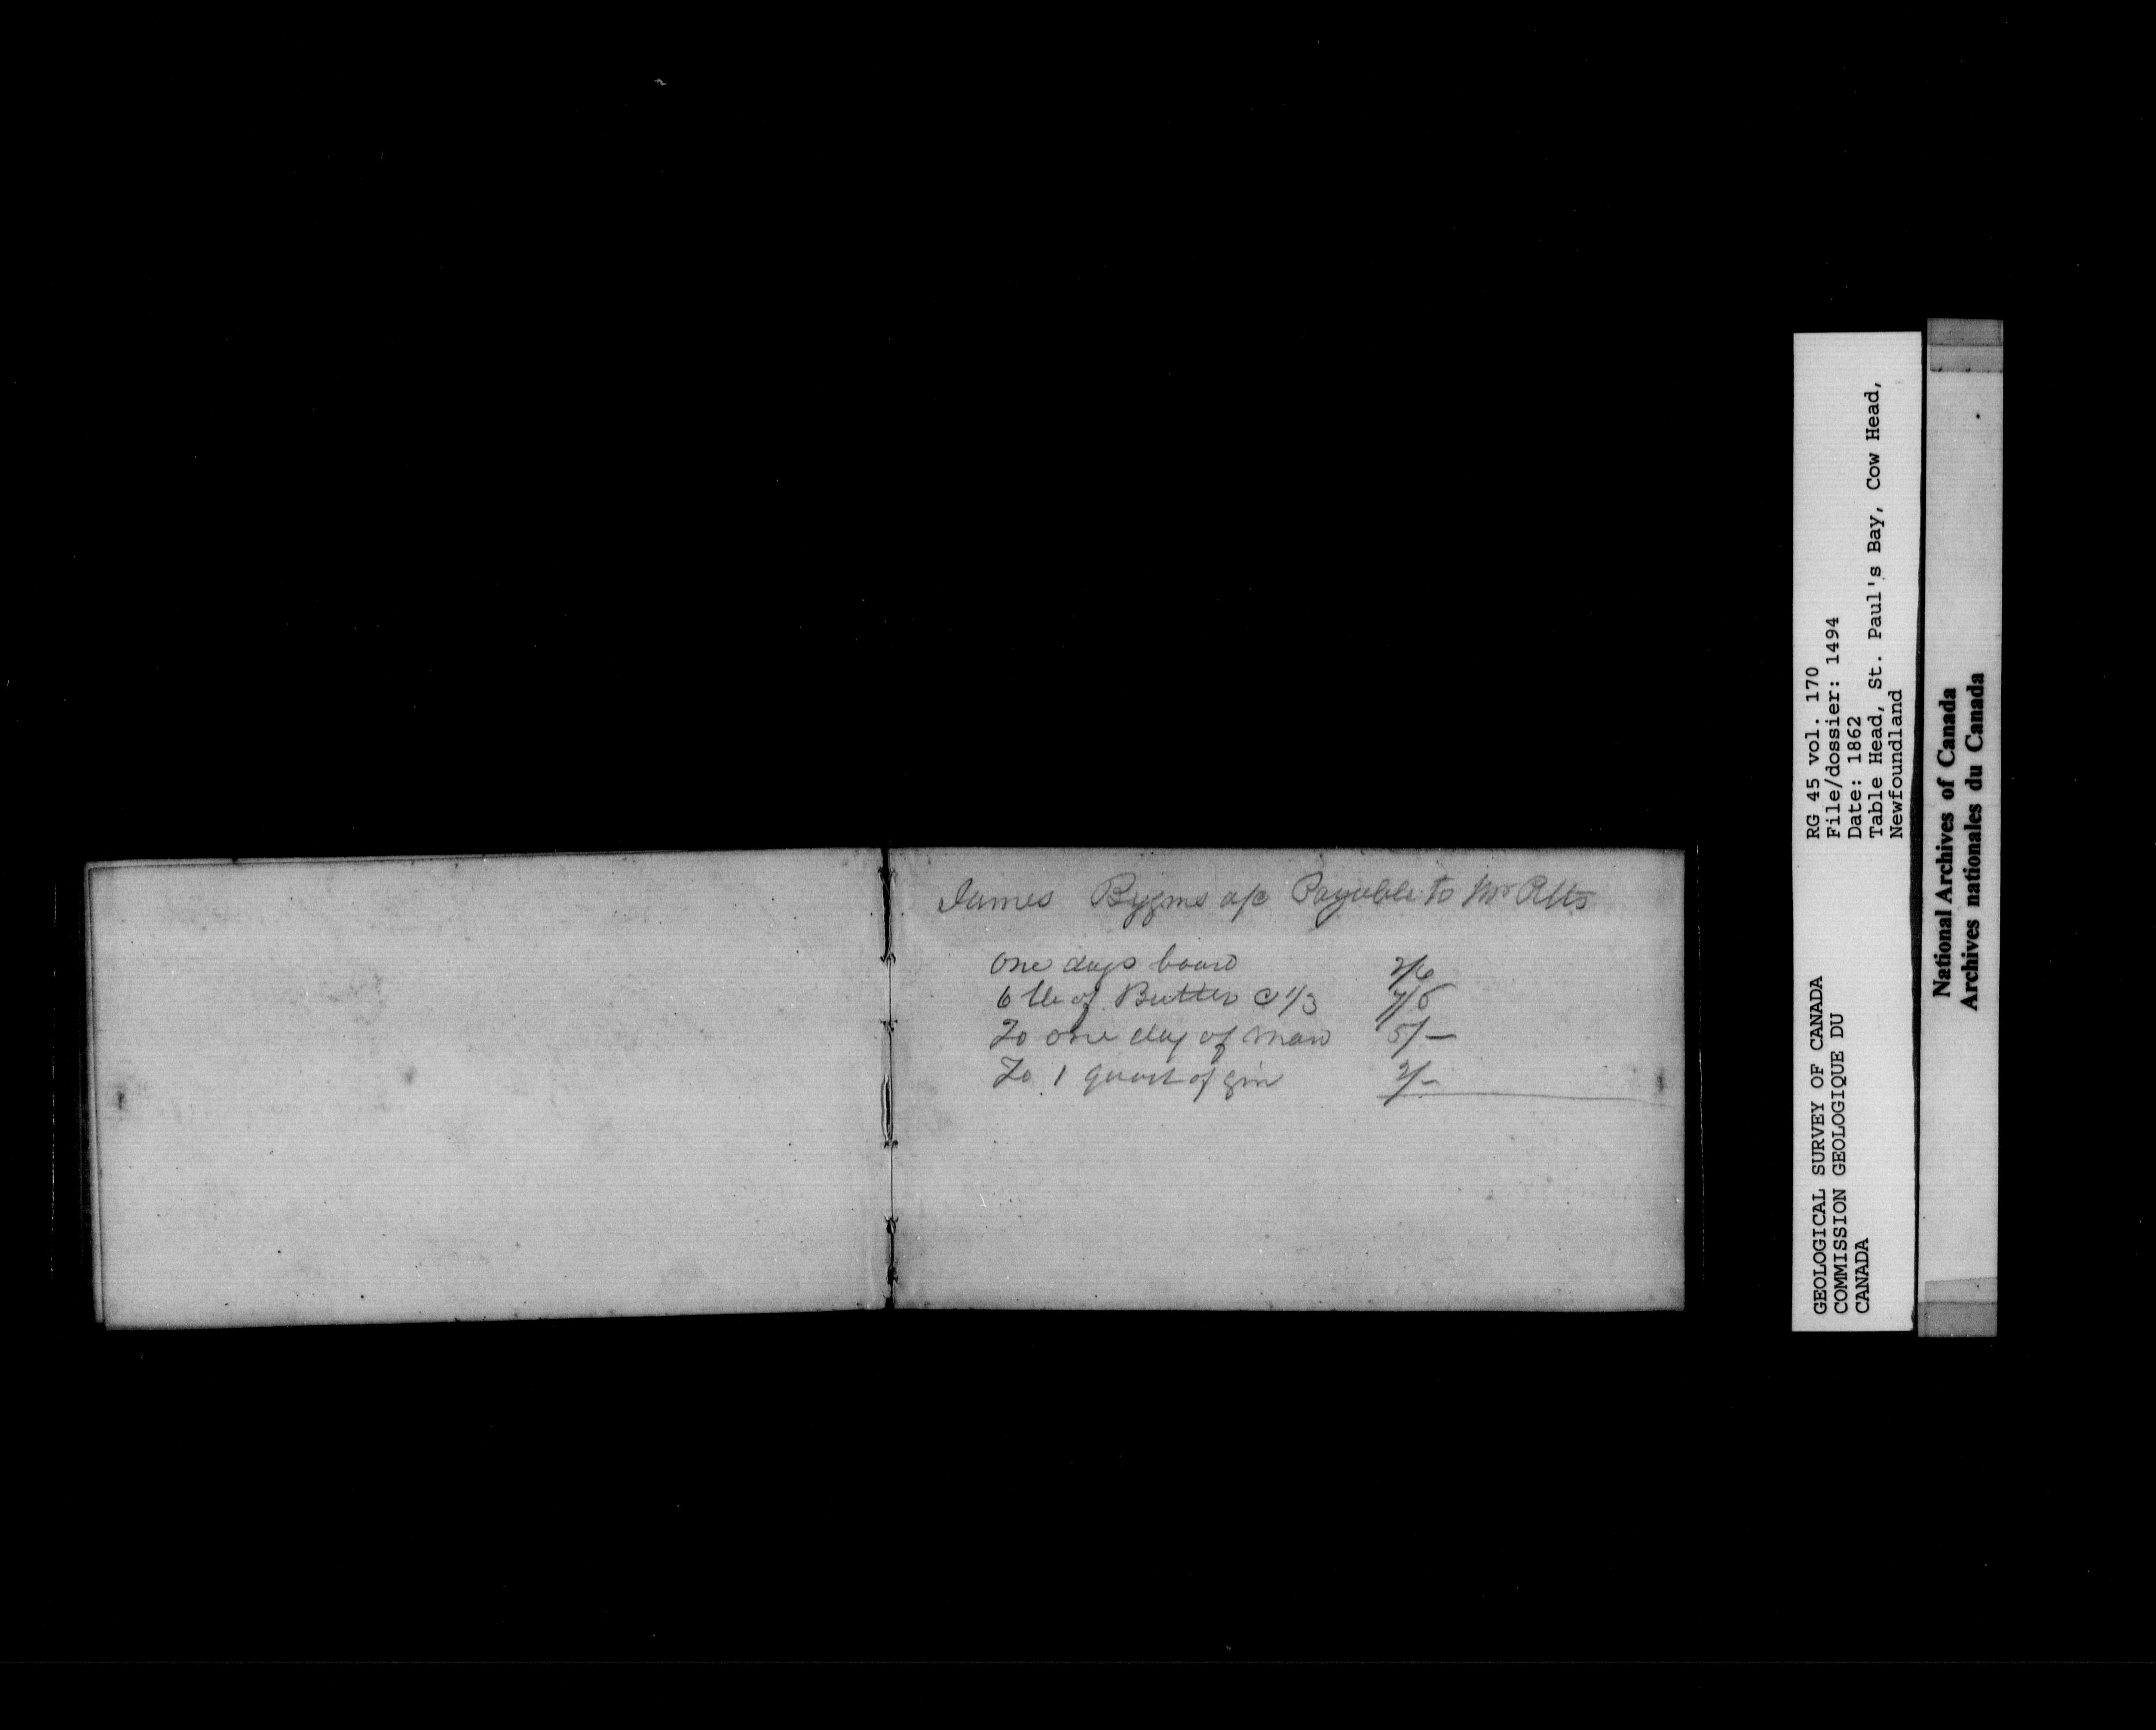 James a/c Payable to Mr
one days board 2/6
6 lb of Butter @ 1/3 7/6
To one day of man 5/-
To 1 quart of gin 2/-
GEOLOGICAL SURVEY OF CANADA
COMMISSION GEOLOGIQUE DU
CANADA
RG 45 vol. 170
File/dossier: 1494
Date: 1862
Table Head, St. Paul's Bay, Cow Head,
Newfoundland
National Archives of Canada
Archives nationales du Canada